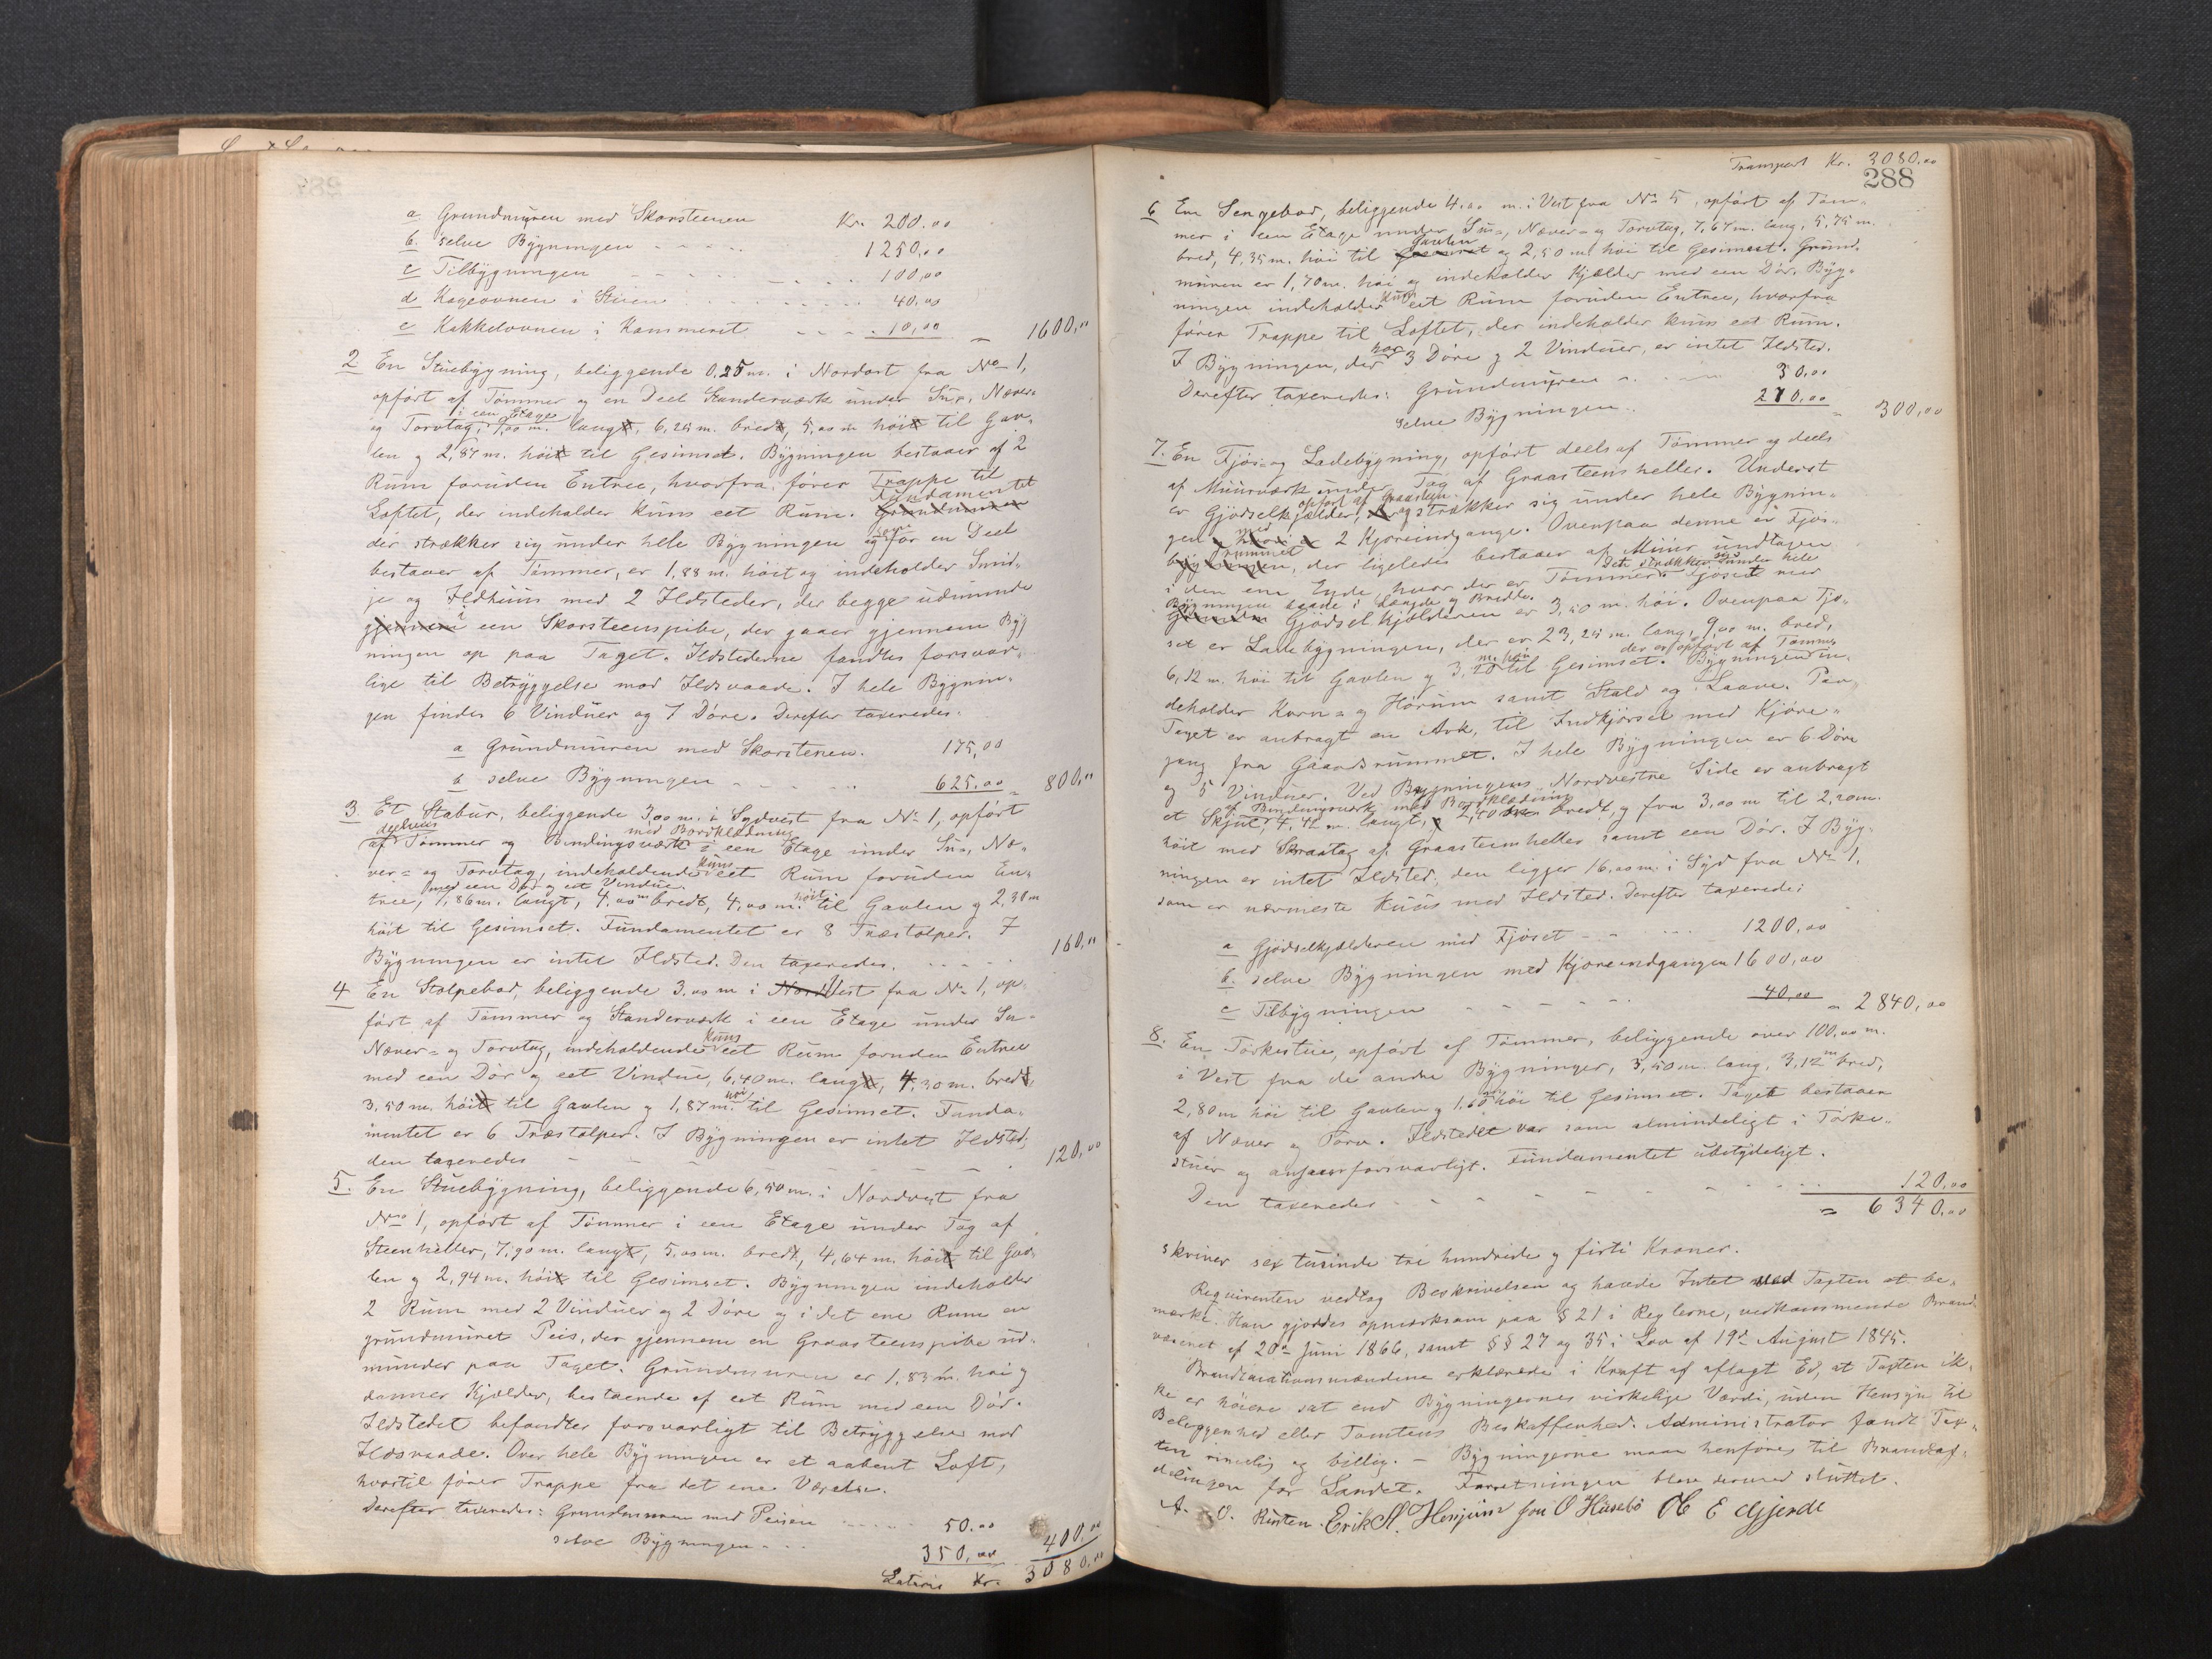 a Grundmuren med Skorstenen Kr. 200.00
b. selve Bygningen 1250,00
c Tilbygningen 100,00
d Kogeovnen i Stuen 40.00
e Kakkelovnen i Kammeret 10,00 = 1600,00
2. En Stuebygning, beliggende 0.25 m. i Nordost fra No 1,
opført af Tømmer og en Deel Standerværk under Su-, Næver=
i een Etage
og Torvtag, 9,00 m. langt, 6,25 m. bredt, 5,00 m høit til Gav-
len og 2,87 m. høit til Gesimset. Bygningen bestaaer af 2
Rum foruden Entree, hvorfra fører Trappe til
Fundamentet
Loftet, der indeholder kuns eet Rum. Grundmuren
der strækker sig under hele Bygningen og for en Deel
bestaaer af Tømmer, er 1,88 m. høit og indeholder Smid-
je og Ildhuus med 2 Ildsteder, der begge udmunde
gjennem i een Skorsteenspibe, der gaaer gjennem Byg
ningen op paa Taget. Ildstederne fandtes forsvar-
lige til Betryggelse mod Ildsvaade. I hele Bygnin-
gen findes 6 Vinduer og 7 Døre. Derefter taxeredes:
a Grundmuren med Skorstenen. 175,00
b selve Bygningen 625.00 = 800,00
3. Et Stabur, beliggende 3,00 m. i Sydvest fra No 1, opført
deelviis med Bordklædning
af Tømmer og Bindingsværk i een Etage under Su-, Næ-
kuns
ver= og Torvtag, indeholdende eet Rum foruden En-
med een Dør og eet Vindue.
tree, 7,86 m. langt, 4.00 m bredt, 4,00 m. høit til Gavlen og 2,30 m
høit til Gesimset. Fundamentet er 8 Træstolper. I
Bygningen er intet Ildsted. Den taxeredes. 160,00
4 En Stolpebod, beliggende 3.00 m i Nord Vest fra No 1, op-
ført af Tømmer og Standerværk i een Etage under Su-
kuns
Næver= og Torvtag, indeholdende eet Rum foruden Entree
med een Dør og eet Vindue, 6,40 m. langt, 4.30 m. bredt,
høi
3.50 m. høit til Gavlen og 1,87 m. til Gesimset. Funda-
mentet er 6 Træstolper. I Bygningen er intet Ildsted;
den taxeredes 120,00
5. En Stuebygning, beliggende 6,50 m. i Nordvest fra
No 1, opført af Tømmer i een Etage under Tag af
Steenheller, 7,90 m. langt, 5,00 m. bredt, 4,64 m. høit til Gav-
len og 2,94 m. høit til Gesimset. Bygningen indeholder
2 Rum med 2 Vinduer og 2 Døre og i det ene Rum en
grundmuret Peis, der gjennem en Graasteenspibe ud-
munder paa Taget. Grundmuren er 1,83 m. høi og
danner Kjælder, bestaaende af eet Rum med een Dør.
Ildstedet befandtes forsvarligt til Betryggelse mod
Ildsvaade. Over hele Bygningen er et aabent Loft,
hvortil fører Trappe fra det ene Værelse.
Derefter taxeredes: Grundmuren med Peisen 50.00
selve Bygningen 350,00 400,00
Lateris Kr. 3080,00
Transport Kr. 3080,00
288
6 En Sengebod, beliggende 4.00 m. i Vest fra No 5, opført af Tøm-
mer i een Etage under Su-, Næver= og Torvtag, 7,67 m. lang, 5,75 m.
Gavlen
bred, 4,35 m. høi til Gesimset og 2,50 m høi til Gesimset. Grund-
muren er 1,70 m. høi og indeholder Kjælder med een Dør. Byg-
kuns
ningen indeholder eet Rum foruden Entree, hvorfra
fører Trappe til Loftet, der indeholder kuns eet Rum.
har
I Bygningen, der 3 Døre og 2 Vinduer, er intet Ildsted.
Derefter taxeredes: Grundmuren 30,00
selve Bygningen 270,00 = 300,00
7. En Fjøs= og Ladebygning, opført deels af Tømmer og deels
af Muurværk under Tag af Graasteensheller. Underst
opført af Graasteen
er Gjødselkjælder, og strækker sig under hele Bygnin-
med
gen 2 Kjøreindgange. Ovenpaa denne er Fjøs-
rummet
bygningen, der ligeledes bestaaer af Muur undtagen
Det strækker sig under hele
i den ene Ende, hvor der er Tømmer. Fjøset med
Bygningen baade i Længde og Bredde.
Gjødselkjælderen er 3,50 m. høi. Ovenpaa Fjø-
set er Ladebygningen, der er 23,25 m. lang, 9,00 m. bred,
m. høi der er opført af Tømmer
6,12 m. høi til Gavlen og 3,20 til Gesimset. Bygningen in-
deholder Korn= og Hørum samt Stald og Laave. Paa
Taget er anbragt en Ark, til Indkjørsel med Kjøre-
gang fra Gaardsrummet. I hele Bygningen er 6 Døre
og 5 Vinduer. Ved Bygningens Nordvestre Side er anbragt
af Bindingsværk med Bordklædning
et Skjul, 4,42 m. langt, 2,40 m bredt og fra 3,00 m til 2,20 m.
høit med Skraatag af Graasteensheller samt een Dør. I Byg-
ningen er intet Ildsted; den ligger 16,00 m. i Syd fra No 1,
som er nærmeste Huus med Ildsted. Derefter taxeredes:
a Gjødselkjælderen med Fjøset 1200,00
b. selve Bygningen med Kjøreindgangen 1600,00
c Tilbygningen 40,00 = 2840,00
8. En Tørkestue, opført af Tømmer, beliggende over 100,00 m.
i Vest fra de andre Bygninger, 3,50 m. lang, 3,12 m bred,
2,80 m høi til Gavlen og 1,60 m høi til Gesimset. Taget bestaaer
af Næver og Torv. Ildstedet var som almindeligt i Tørke-
stuer og ansaaes forsvarligt. Fundamentet ubetydeligt.
Den taxeredes 120,00
= 6340,00
skriver sex tusinde tre hundrede og firti Kroner.
Reqvirenten vedtog Beskrivelsen og havde Intet ved Taxten at be-
mærke. Han gjordes opmærksom paa § 21 i Reglerne, vedkommende Brand-
væsenet af 20de Juni 1866, samt §§ 27 og 35 i Lov af 19de August 1845.
Brandtaxationsmændene erklærede i Kraft af aflagt Ed, at Taxten ik-
ke er høiere sat end Bygningernes virkelige Værdi, uden Hensyn til
Beliggenhed eller Tomtens Beskaffenhed. Administrator fandt Tax-
ten rimelig og billig. – Bygningerne maae henføres til Brandaf-
delingen for Landet. Forretningen blev dermed sluttet.
A. O. Risten. Erik A. Henjum Jon O Husebø Ole E Gjerde